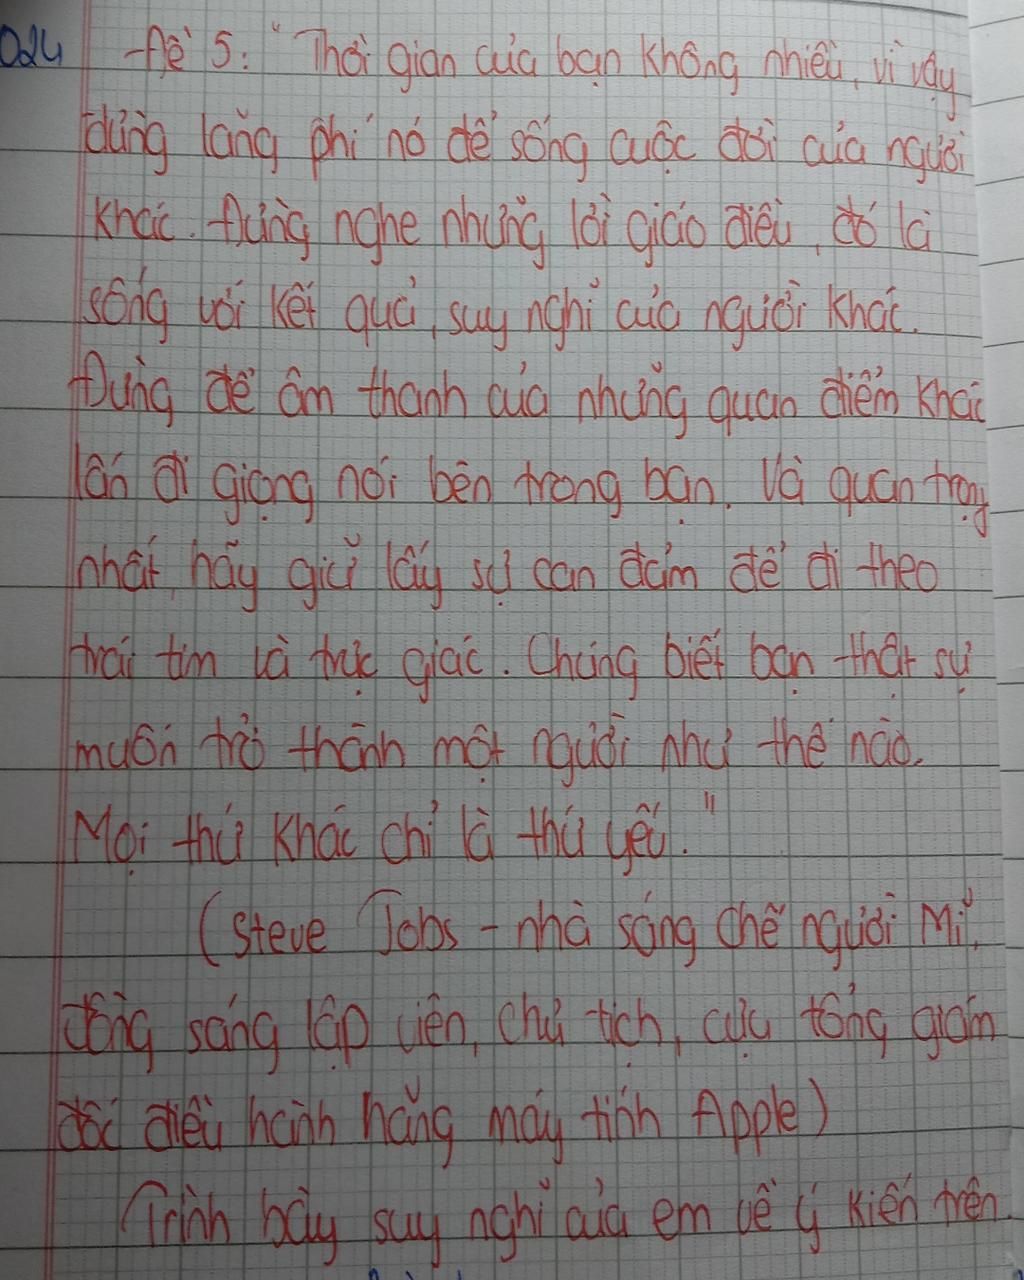 024
-Đề 5: "Thời gian của bạn không nhiều, vì vậy
đừng lãng phí nó để sống cuộc đời của người
khác. Đừng nghe những lời giáo điều, đó là
sống với kết quả, suy nghĩ của người khác.
Đừng để âm thanh của những quan điểm khác
lấn đi giọng nói bên trong bạn. Và quan trọng
nhất, hãy giữ lấy sự can đảm để đi theo
trái tim và trực giác. Chúng biết bạn thật sự
muốn trở thành một người như thế nào.
Mọi thứ khác chỉ là thứ yếu."
(Steve Jobs - nhà sáng chế người Mĩ,
đồng sáng lập viên, chủ tịch, cựu tổng giám
đốc điều hành hãng máy tính Apple)
Trình bày suy nghĩ của em về ý kiến trên.